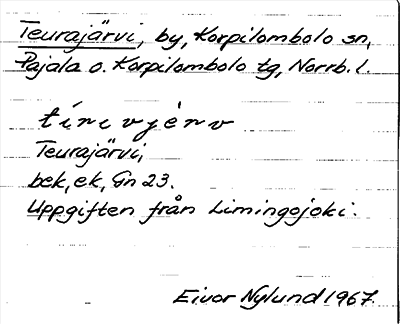 Teurajärvi, by, Korpilombolo sn,
Pajala o. Korpilombolo tg, Norrb. l.
Teurajärvi,
bek, ek, Gn 23.
Uppgiften från Limingojoki.
Eivor Nylund 1967.